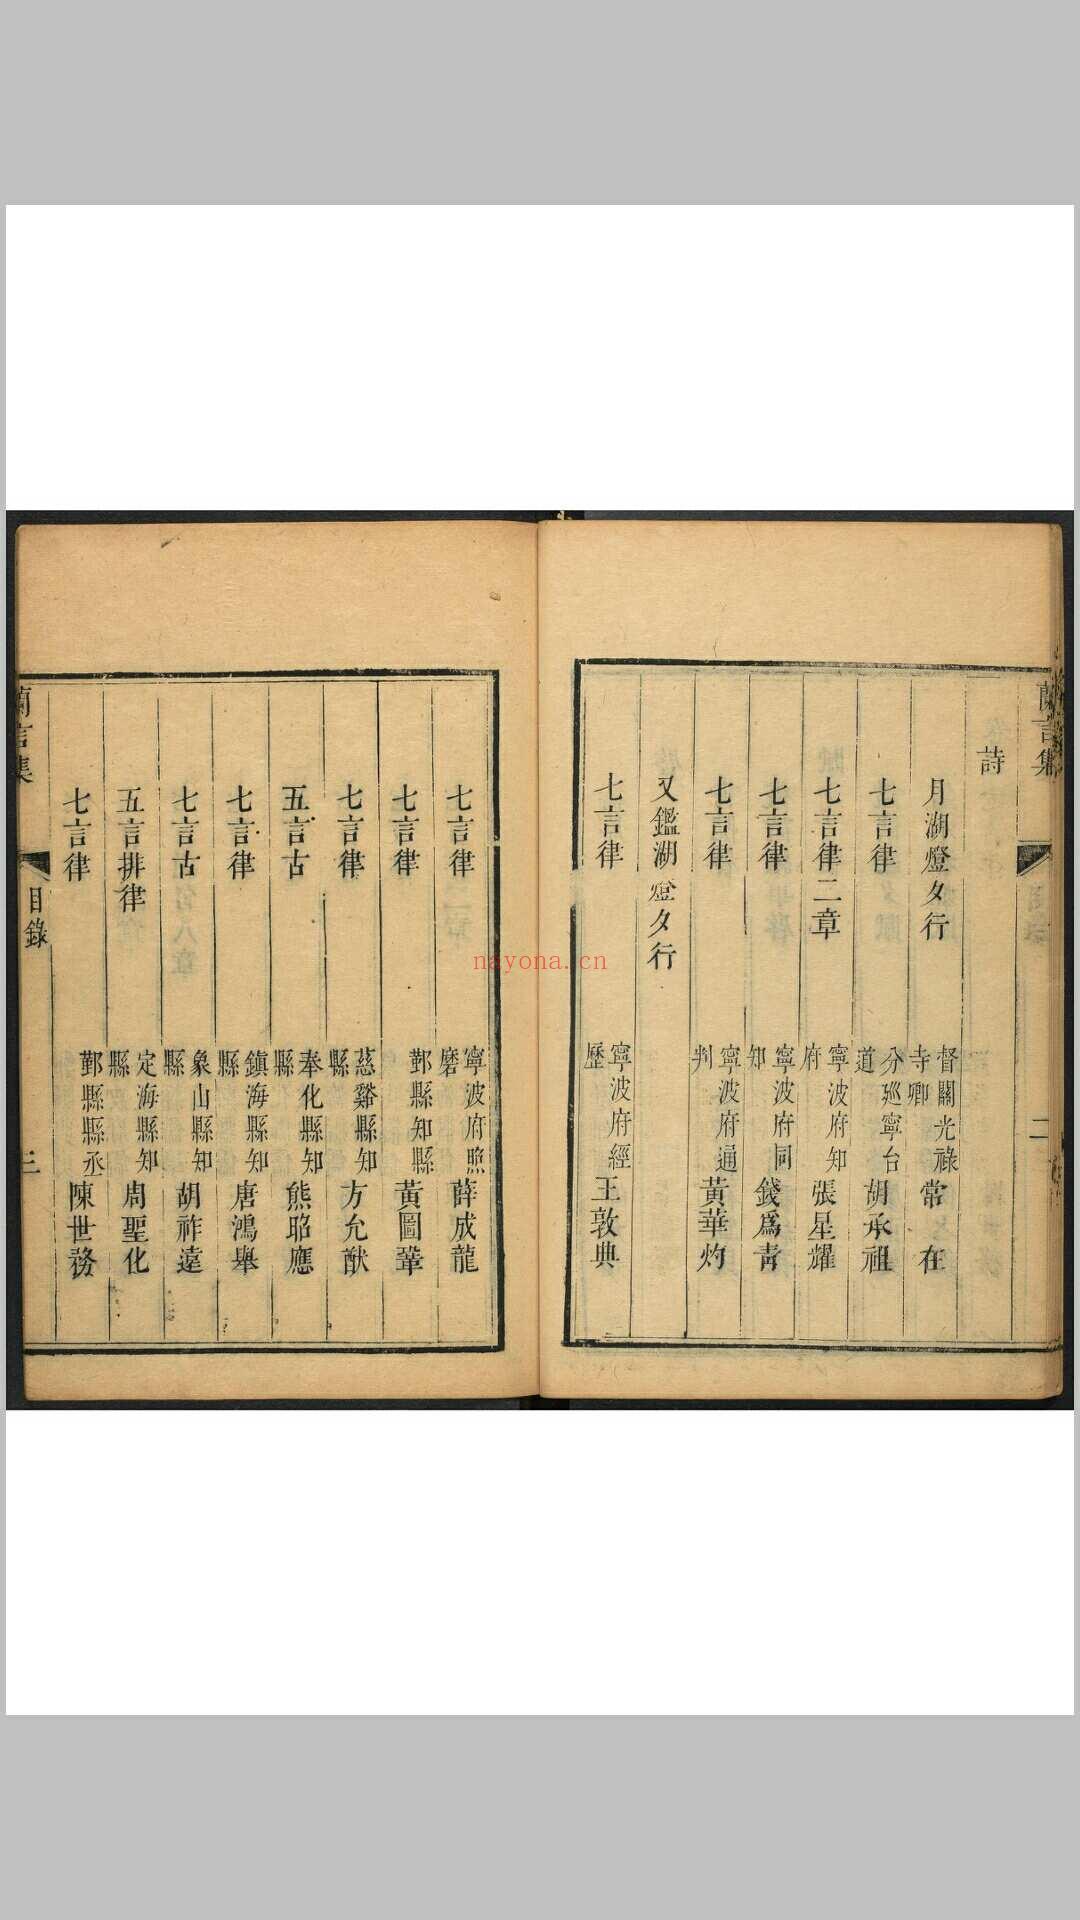 蘭言集
二
詩
月湖燈夕行 督關光祿寺卿 常在
七言律 分廵寧台道 胡承祖
七言律二章 寧波府知府 張星耀
七言律 寧波府同知 錢為青
七言律 寧波府通判 黃華灼
又鑑湖燈夕行
七言律 寧波府經歷 王敦典
七言律 寧波府照磨 薛成龍
七言律 鄞縣知縣 黃圖鞏
七言律 慈谿縣知縣 方允猷
五言古 奉化縣知縣 熊昭應
七言律 鎮海縣知縣 唐鴻舉
七言古 象山縣知縣 胡祚遠
五言排律 定海縣知縣 周聖化
七言律 鄞縣縣丞 陳世務
蘭言集 目錄 三
nayona.cn